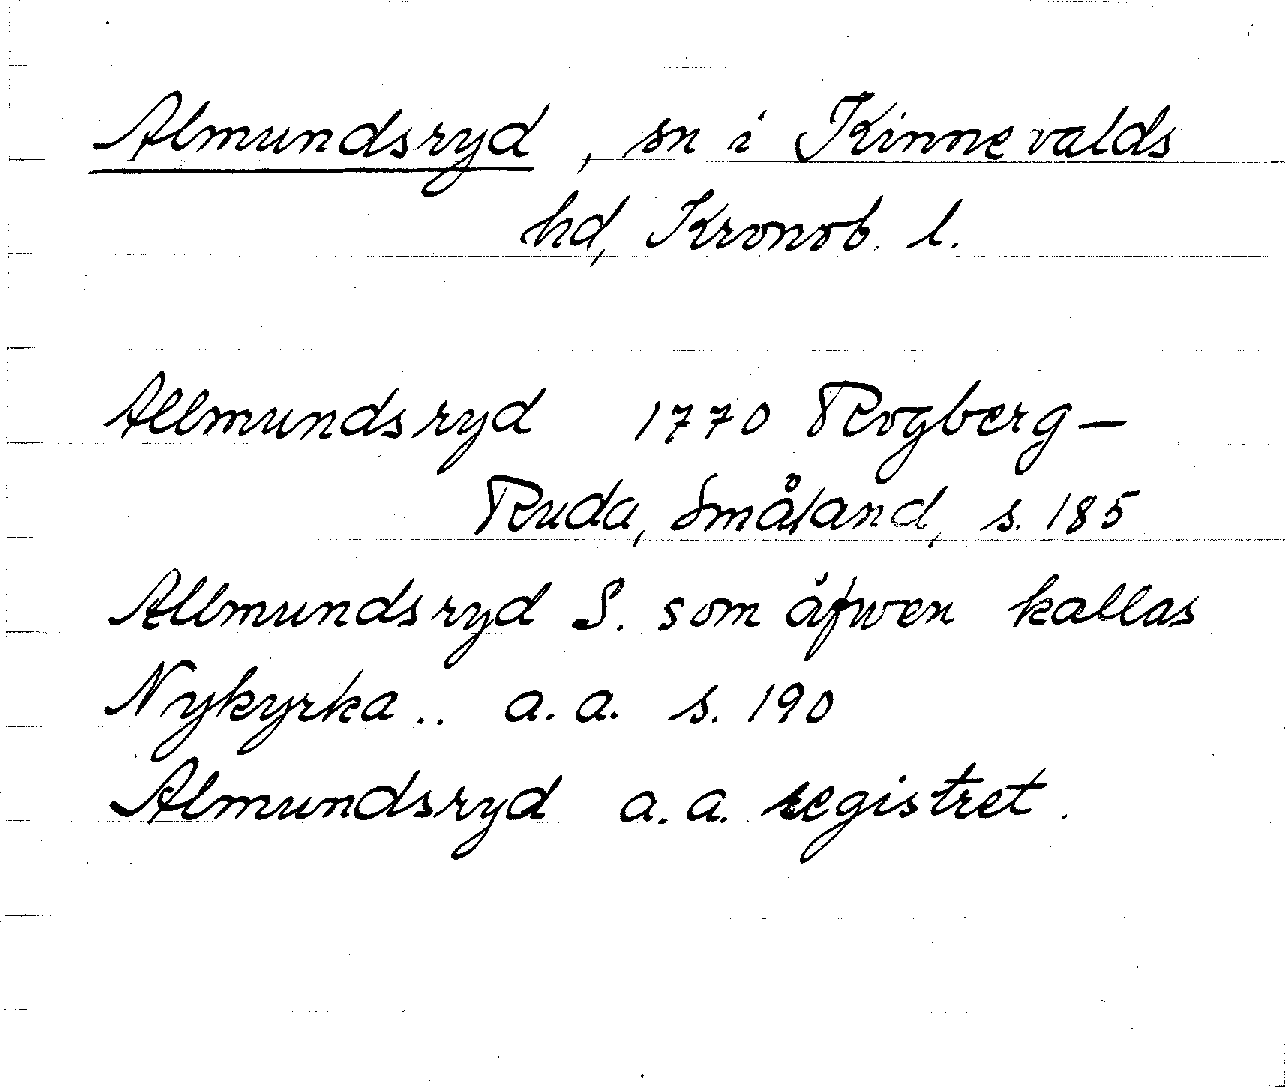 Almundsryd, sn i Kinnevalds
hd, Kronob. l.
Allmundsryd 1770 Rogberg-
Ruda, Småland, s. 185
Allmundsryd S. som äfwen kallas
Nykyrka .. a.a. s. 190
Almundsryd a.a. registret.